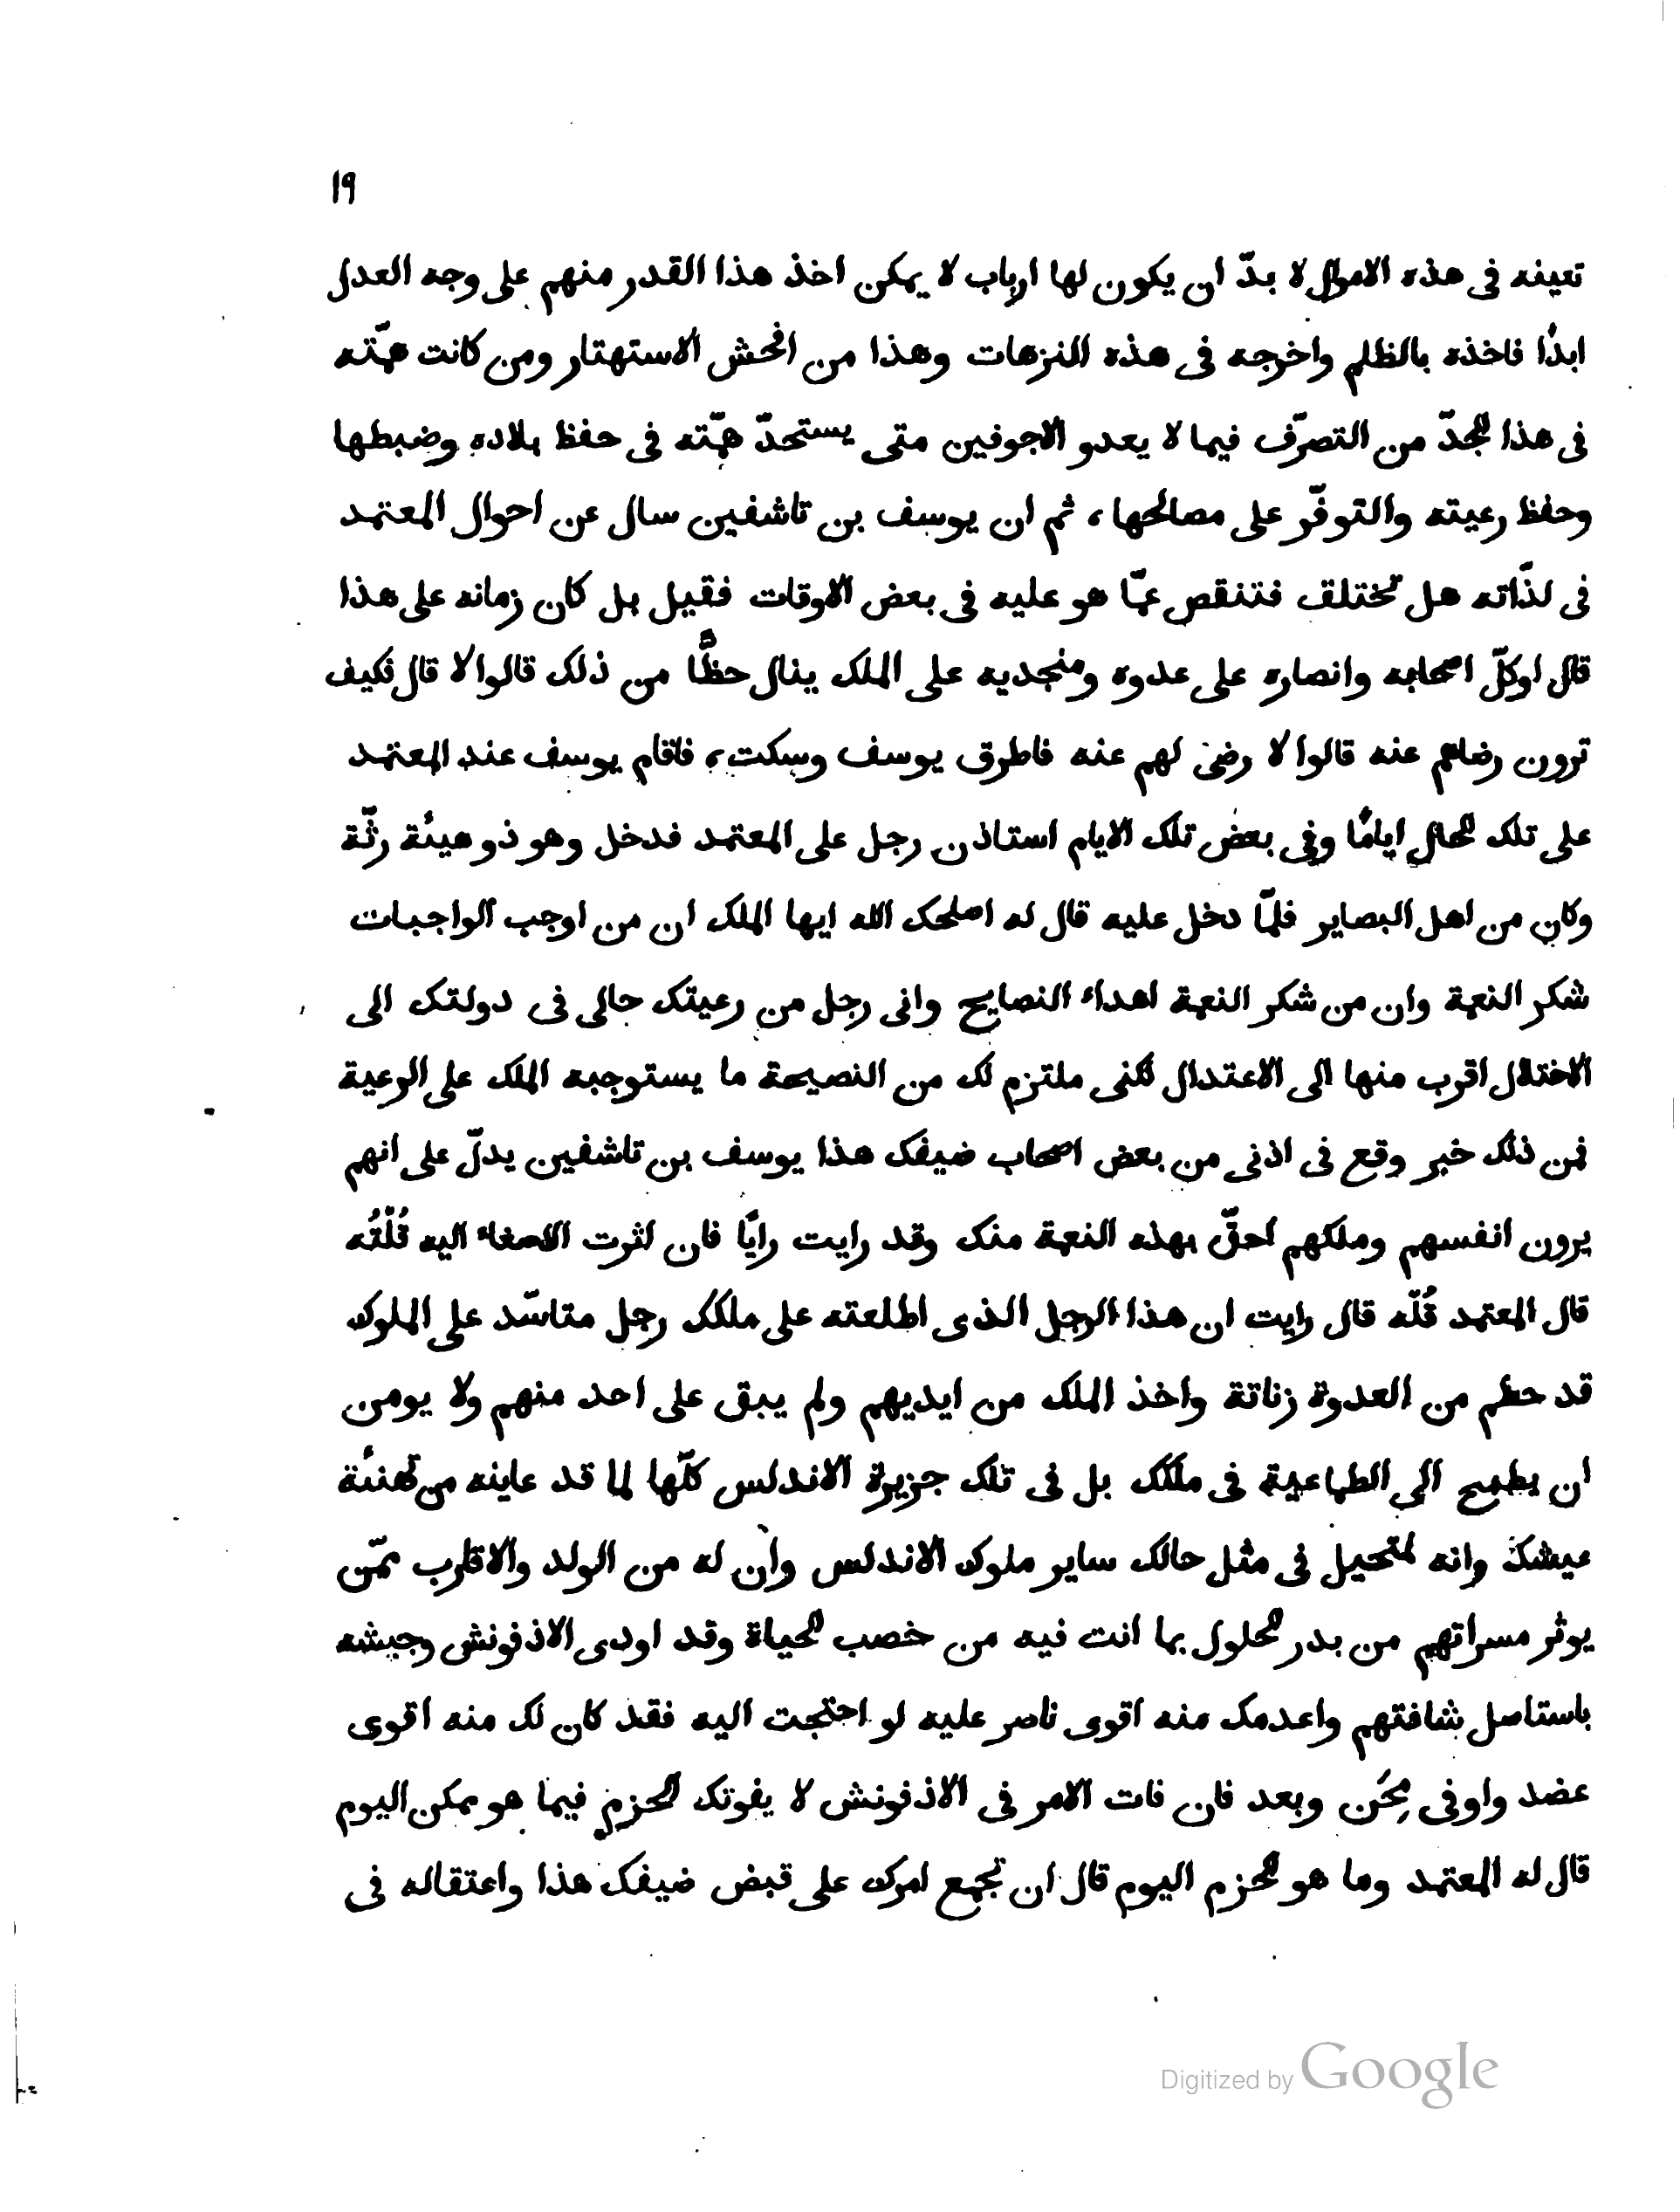 ١٩
تعينه فى هذه الاموال لا بدّ ان يكون لها ارباب لا يمكن اخذ هذا القدر منهم على وجه العدل
ابدًا فاخذه بالظلم واخرجه فى هذه النزهات وهذا من افحش الاستهتار ومن كانت همّته
فى هذا الحدّ من التصرّف فيما لا يعدو الاجوفين متى يستحدّ همّته فى حفظ بلاده وضبطها
وحفظ رعيته والتوفّر على مصالحها، ثم ان يوسف بن تاشفين سال عن احوال المعتمد
فى لذّاته هل تختلف فتنقص عمّا هو عليه فى بعض الاوقات فقيل بل كان زمانه على هذا
قال اوكلّ اصحابه وانصاره على عدوه ومنجديه على الملك ينال حظًّا من ذلك قالوا لا قال فكيف
ترون رضاهم عنه قالوا لا رضىً لهم عنه فاطرق يوسف وسكت، فاقام يوسف عند المعتمد
على تلك الحال ايامًا وفى بعض تلك الايام استاذن رجل على المعتمد فدخل وهو ذو هيئة رثّة
وكان من اهل البصاير فلمّا دخل عليه قال له اصلحك الله ايها الملك ان من اوجب الواجبات
شكر النعمة وان من شكر النعمة اهداء النصايح وانى رجل من رعيتك حالى فى دولتك الى
الاختلال اقرب منها الى الاعتدال لكنى ملتزم لك من النصيحة ما يستوجبه الملك على الرعية
فمن ذلك خبر وقع فى اذنى من بعض اصحاب ضيفك هذا يوسف بن تاشفين يدلّ على انهم
يرون انفسهم وملكهم احقّ بهذه النعمة منك وقد رايت رايًا فان اثرت الاصغاء اليه قُلْتُه
قال المعتمد قُلْه قال رايت ان هذا الرجل الذى اطلعته على ملكك رجل متاسّد على الملوك
قد حطم من العدوة زناتة واخذ الملك من ايديهم ولم يبق على احد منهم ولا يومن
ان يطمح الى الطماعية فى ملكك بل فى تلك جزيرة الاندلس كلّها لما قد عاينه من تهنئة
عيشك وانه لمتحيل فى مثل حالك ساير ملوك الاندلس وان له من الولد والاقارب ممّن
يوثر مسراتهم من بدر الحلول بما انت فيه من خصب الحياة وقد اودى الاذفونش وجيشه
باستاصل شافتهم واعدمك منه اقوى ناصر عليه لو احتجت اليه فقد كان لك منه اقوى
عضد واوفى مِجَن وبعد فان فات الامر فى الاذفونش لا يفوتك الحزم فيما هو ممكن اليوم
قال له المعتمد وما هو الحزم اليوم قال ان تجمع امرك على قبض ضيفك هذا واعتقاله فى
Digitized by Google